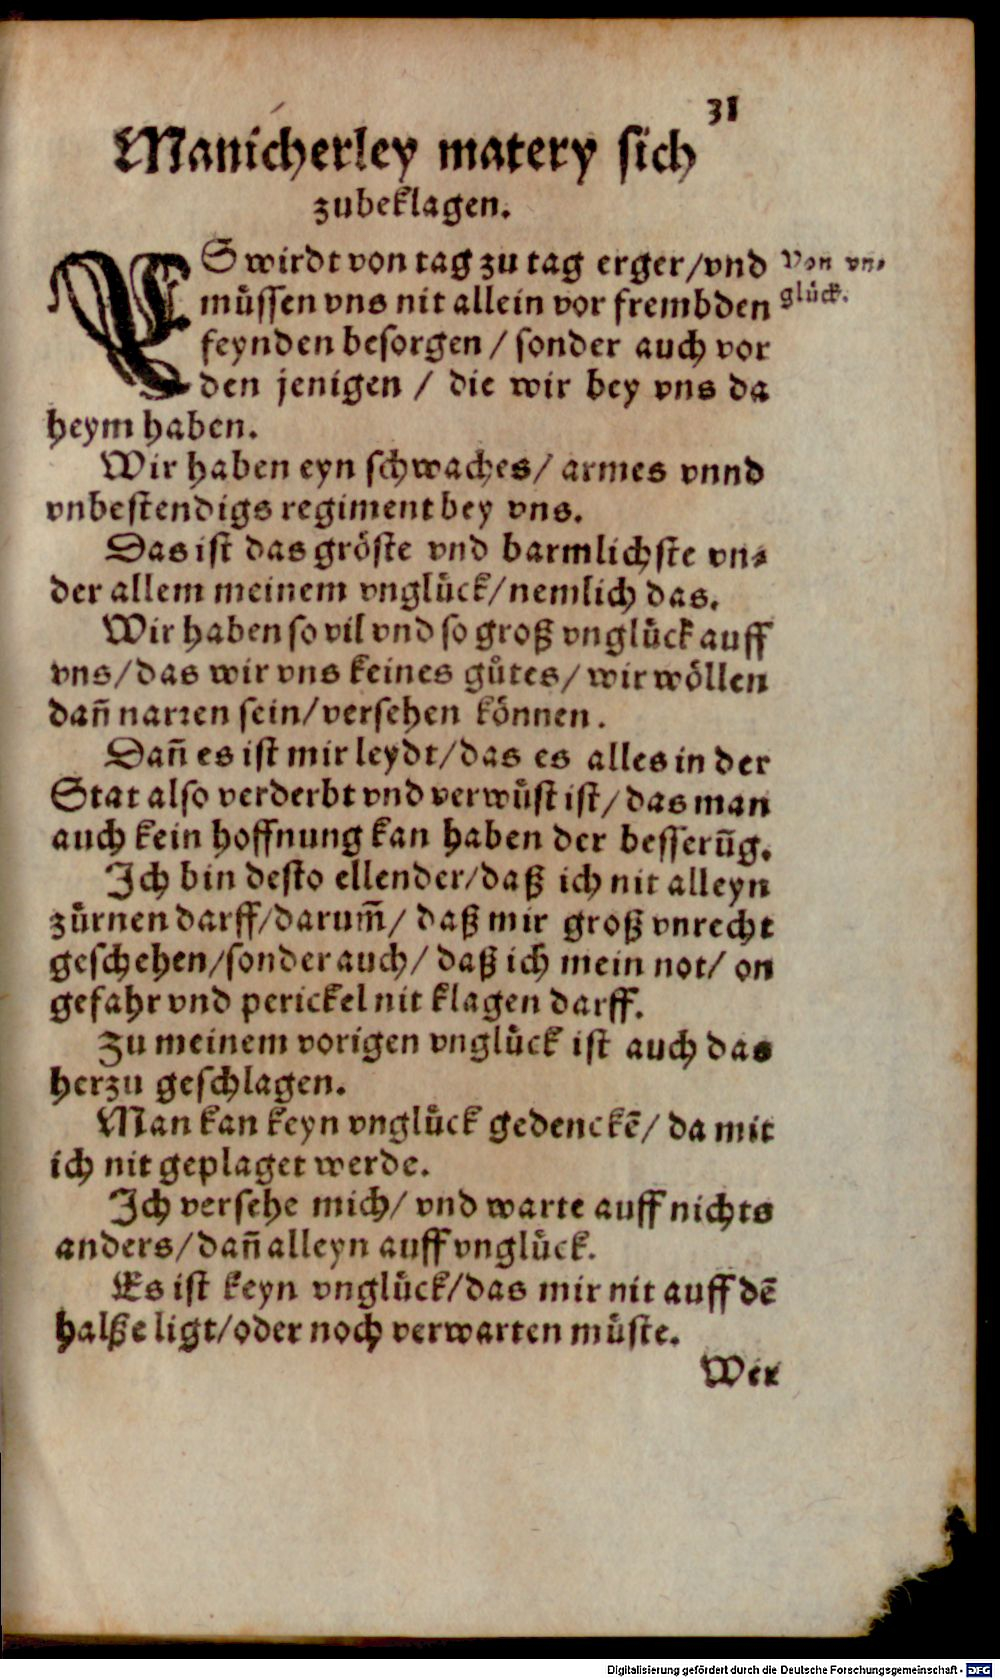 31
Manicherley matery sich
zubeklagen.
ES wirdt von tag zu tag erger/vnd
Von vn⸗
müssen vns nit allein vor frembden
glück.
feynden besorgen / sonder auch vor
den jenigen / die wir bey vns da
heym haben.
Wir haben eyn schwaches/ armes vnnd
vnbestendigs regiment bey vns.
Das ist das gröste vnd barmlichste vn⸗
der allem meinem vnglück/nemlich das.
Wir haben so vil vnd so groß vnglück auff
vns/das wir vns keines gůtes/ wir wöllen
dañ narren sein/versehen können.
Dañ es ist mir leydt/das es alles in der
Stat also verderbt vnd verwüst ist/das man
auch kein hoffnung kan haben der besserūg.
Ich bin desto ellender/daß ich nit alleyn
zürnen darff/darum̃/ daß mir groß vnrecht
geschehen/sonder auch/ daß ich mein not/ on
gefahr vnd perickel nit klagen darff.
Zu meinem vorigen vnglück ist auch das
herzu geschlagen.
Man kan keyn vnglück gedenckē/ da mit
ich nit geplaget werde.
Ich versehe mich/ vnd warte auff nichts
anders/dañ alleyn auff vnglück.
Es ist keyn vnglück/das mir nit auff dē
halße ligt/oder noch verwarten müste.
Wer
Digitalisierung gefördert durch die Deutsche Forschungsgemeinschaft - DFG